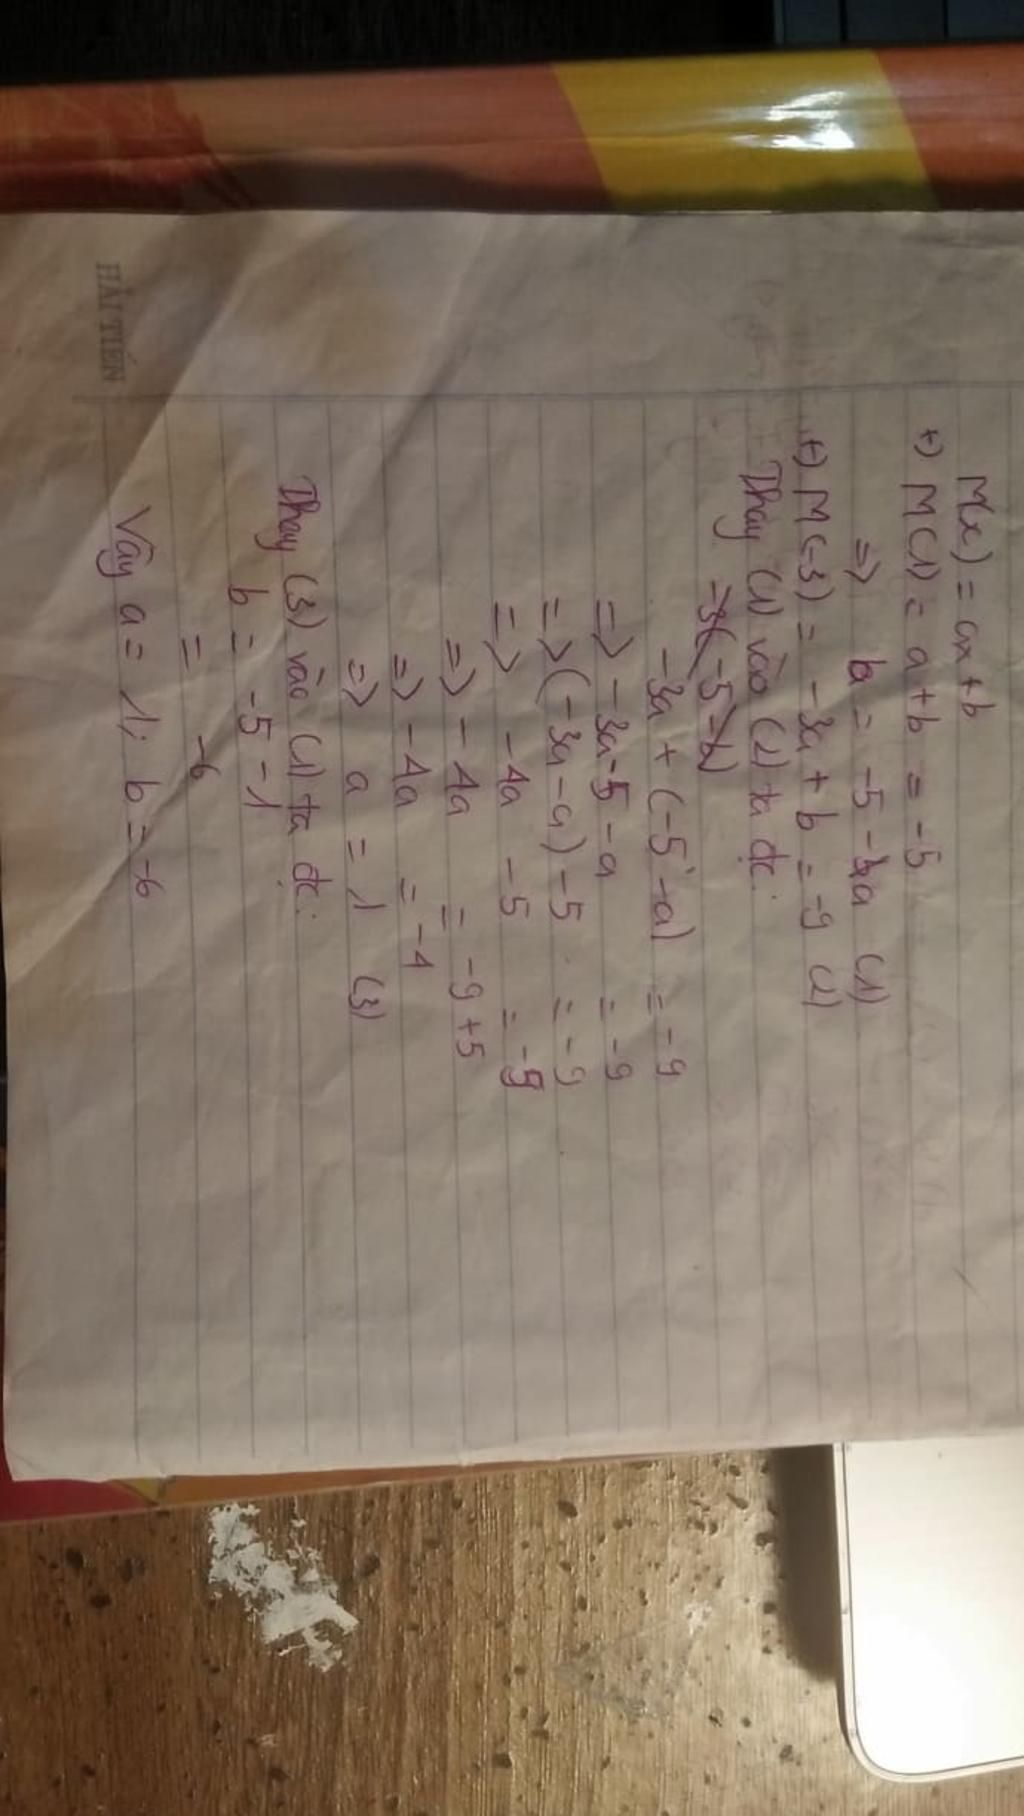 M(x) = ax + b
+) M(1) = a + b = -5
=) b = -5 - a (1)
+) M(-3) = -3a + b = -9 (2)
Thay (1) vào (2) ta đc:
-3(-5-b)
-3a + (-5 - a) = -9
=) -3a - 5 - a = -9
=) (-3a - a) - 5 = -9
=) -4a - 5 = -9
=) -4a = -9 + 5
=) -4a = -4
=) a = 1 (3)
Thay (3) vào (1) ta đc:
b = -5 - 1
= -6
Vậy a = 1; b = -6
HẢI TIẾN